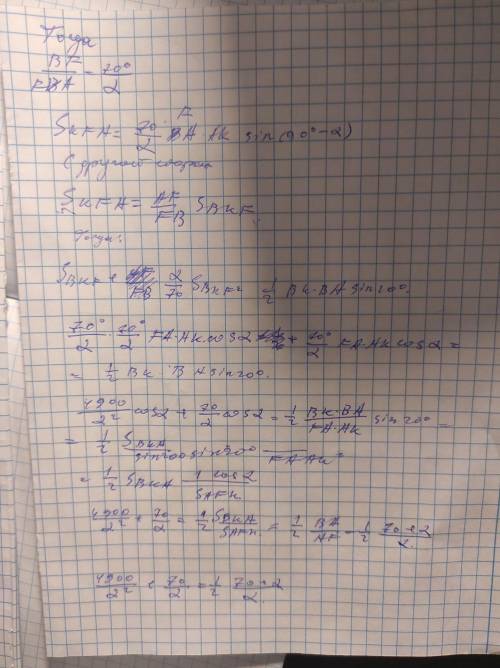 Тогда
BF/FBA = 70°/2
S KFA = 70/2 FA AK sin(90°-2)
С другой стороны
S KFA = AF/FB S BKF.
Тогда:
S BKF + 2/70 S BKF = 1/2 BK·BA sin 20°.
70°/2 · 70°/2 FA·AK cos2 + 70°/2 FA·AK cos2 =
= 1/2 BK · BA sin 20°.
4900/2² cos2 + 70/2 cos2 = 1/2 BK·BA/FA·AK sin 20° =
= 1/2 S BKA / FA AK =
= 1/2 S BKA 1 cos2 / S AFK
4900/2² + 70/2 = 1/2 S BKA/S AFK = 1/2 BA/AF = 1/2 70+2/2
4900/2² + 70/2 = 1/2 70+2/2